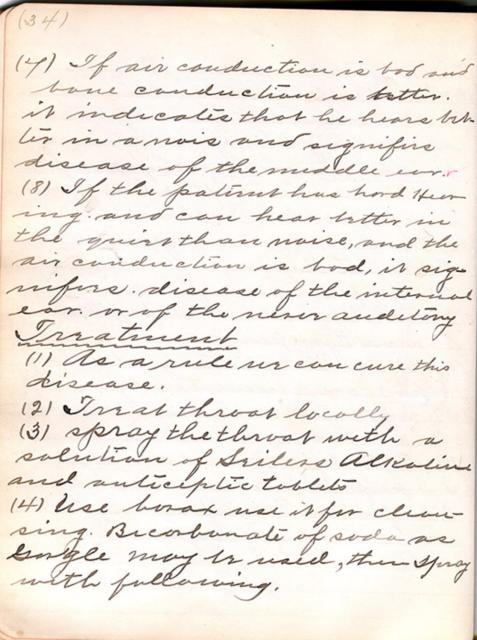 (34)
(7) If air conduction is bad and
bone conduction is better.
it indicates that he hears bet-
ter in a nois and signifies
disease of the middle ear.
(8) If the patient has hard Hear-
ing. and can hear better in
the quiet than noise, and the
air conduction is bad, it sig-
nifies. disease of the internal
ear. or of the nerve auditory
Treatment
(1) As a rule we can cure this
disease.
(2) Treat throat locally
(3) spray the throat with a
solution of Seilers Alkaline
and anticeptic tablets
(4) Use borax use it for clean-
sing. Bicorbonate of soda as
Gorgle may be used, then spray
with following.